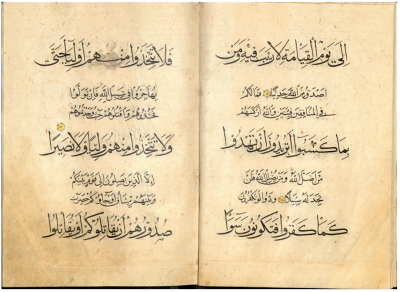 الى يوم القيامة لا ريب فيه ومن
اصدق من الله حديثا فمالكم
في المنافقين فئتين والله اركسهم
بما كسبوا أتريدون أن تهدوا
من اضل الله ومن يضلل الله فلن
تجد له سبيلا ودوا لو تكفرون
كما كفروا فتكونون سواء
فلا تتخذوا منهم أولياء حتى
يهاجروا في سبيل الله فان تولوا
فخذوهم واقتلوهم حيث وجدتموهم
ولا تتخذوا منهم وليا ولا نصيرا
الا الذين يصلون الى قوم بينكم
وبينهم ميثاق أو جاؤكم حصرت
صدورهم أن يقاتلوكم أو يقاتلوا